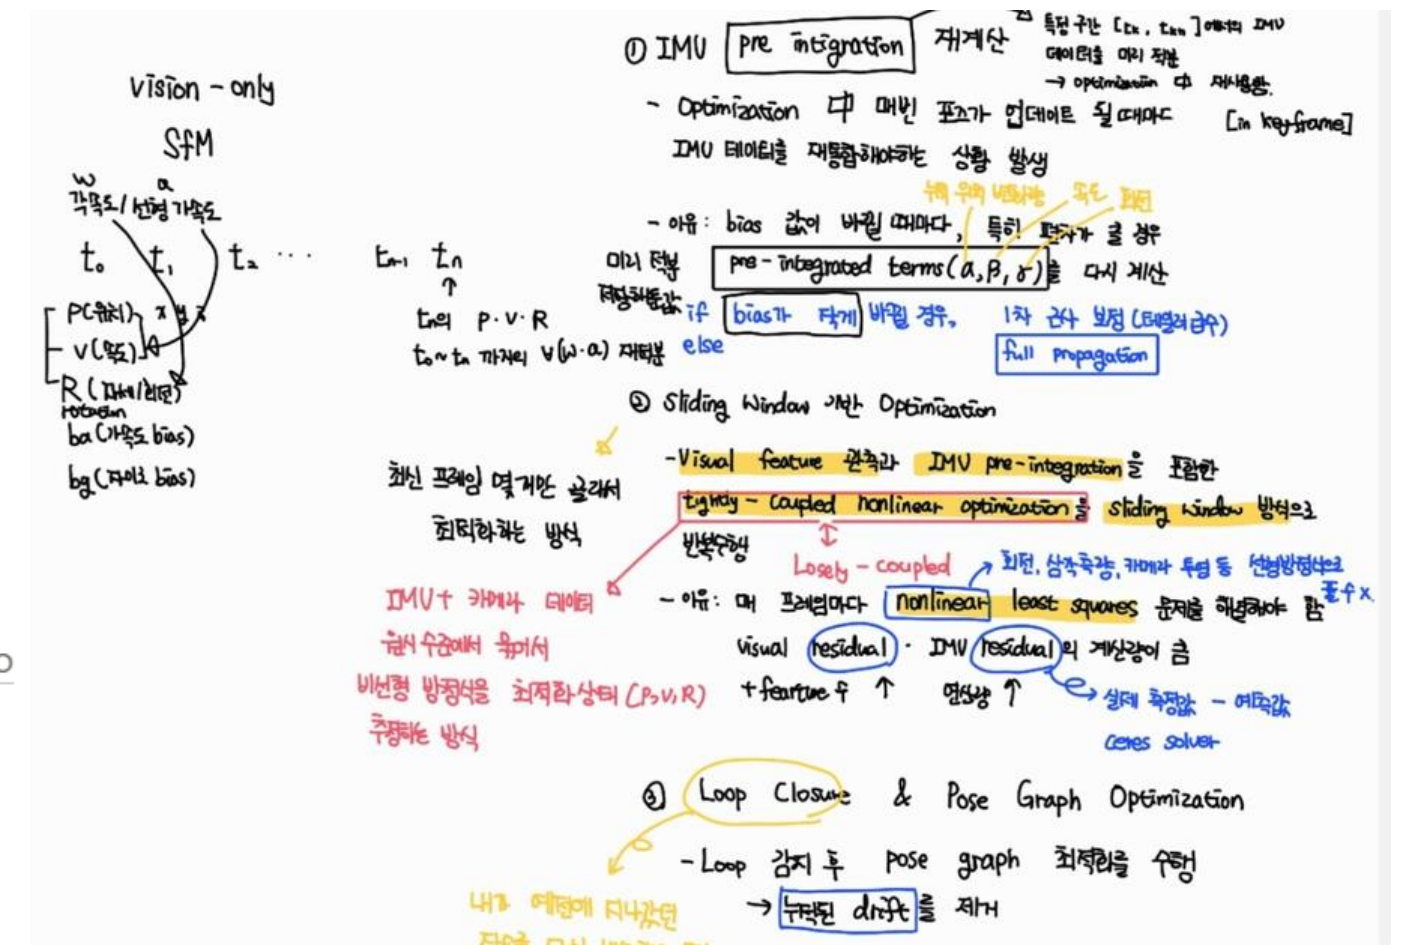 vision-only
SfM
w a
각속도/선형가속도
t₀ t₁ t₂ ... tₙ₋₁ tₙ
P(위치) x y z
v(속도)
R(자세/회전)
rotation
ba(가속도 bias)
bg(자이로 bias)
↑
tₙ의 P·V·R
t₀~tₙ 까지의 v(w·a) 재적분
① IMU pre intigration 재계산
특정 구간 [tk, tk+1]에서의 IMU
데이터를 미리 적분
→ optimization 中 재사용함.
[in keyframe]
- Optimization 中 매번 포즈가 업데이트 될 때마다
IMU 데이터를 재통합해야하는 상황 발생
누적 위치 변화량 속도 회전
- 이유: bias 값이 바뀔 때마다, 특히 편차가 클 경우
미리 적분 pre-integrated terms(α,β,γ)를 다시 계산
저장해둔값
if bias가 작게 바뀔 경우, 1차 근사 보정(테일러급수)
else full propagation
② Sliding Window 기반 Optimization
최신 프레임 몇개만 골라서
최적화하는 방식
- Visual feature 관측과 IMU pre-integration을 포함한
tightly-coupled nonlinear optimization을 sliding window 방식으로
반복수행
↕
Losely-coupled
IMU+ 카메라 데이터
원시 수준에서 묶어서
비선형 방정식을 최적화 상태(P,V,R)
추정하는 방식
→ 회전, 삼각측량, 카메라 투영 등 선형방정식으로
풀수x
- 이유: 매 프레임마다 nonlinear least squares 문제를 해결해야 함
visual residual · IMU residual의 계산량이 큼
+fearture 수 ↑ 연산량 ↑
실제 측정값 - 예측값
ceres solver
③ Loop Closure & Pose Graph Optimization
- Loop 감지 후 pose graph 최적화를 수행
→ 누적된 drift를 제거
내가 예전에 지나갔던